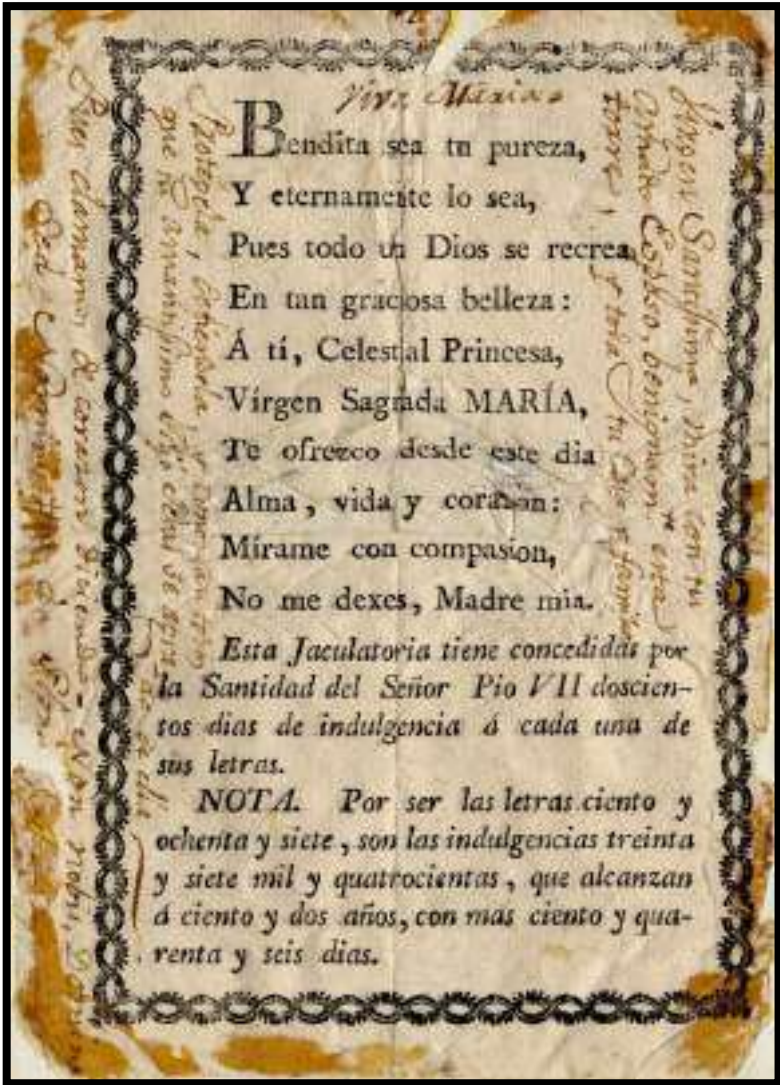 Viva Maria
Bendita sea tu pureza,
Y eternamente lo sea,
Pues todo un Dios se recrea
En tan graciosa belleza:
Á tí, Celestial Princesa,
Vírgen Sagrada MARÍA,
Te ofrezco desde este dia
Alma, vida y corazon:
Mírame con compasion,
No me dexes, Madre mia.
Esta Jaculatoria tiene concedidas por
la Santidad del Señor Pio VII doscien-
tos dias de indulgencia á cada una de
sus letras.
NOTA. Por ser las letras ciento y
ochenta y siete, son las indulgencias treinta
y siete mil y quatrocientas, que alcanzan
á ciento y dos años, con mas ciento y qua-
renta y seis dias.
Santissima, mira con tu
y toda tu
que tu amantissimo
Pues clamamos de corazon diciendo - Non nobis,
Sed Nomini